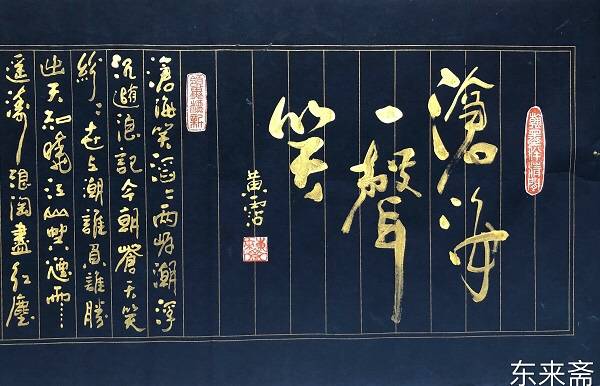 滄海
一聲
笑
黄霑
滄海笑滔〻兩岸潮浮
沉隨浪記今朝蒼天笑
紛〻世上潮誰負誰勝
出天知曉江山笑煙雨
遥濤浪淘盡紅塵
东来斋